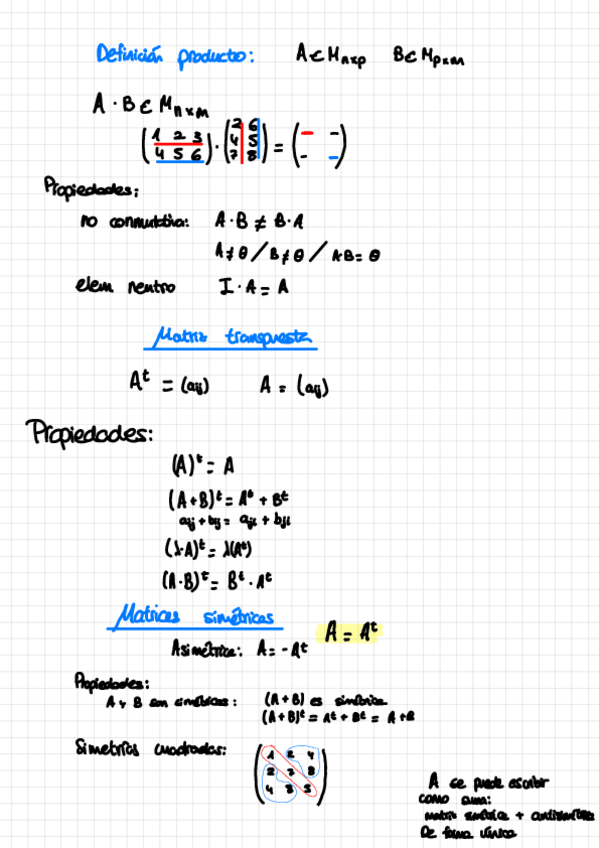 Definición producto: A ∈ Mnxp B ∈ Mpxm
A · B ∈ Mnxm
(1 2 3 · (2 6 = (- -
4 5 6) 4 5
7 8) - -)
Propiedades:
no conmutativa: A·B ≠ B·A
A≠θ / B≠θ / AB=θ
elem neutro I·A = A
Matriz transpuesta
Aᵗ = (aij) A = (aij)
Propiedades:
(A)ᵗ = A
(A+B)ᵗ = Aᵗ + Bᵗ
aij + bij = aji + bji
(λ·A)ᵗ = λ(Aᵗ)
(A·B)ᵗ = Bᵗ · Aᵗ
Matrices simétricas
A = Aᵗ
Asimétrica: A = -Aᵗ
Propiedades:
A y B son simétricas: (A+B) es simétrica
(A+B)ᵗ = Aᵗ + Bᵗ = A+B
Simetrías cuadradas: (1 2 4
2 7 8
4 8 5)
A se puede escribir
como suma:
matriz simétrica + antisimétrica
De forma única